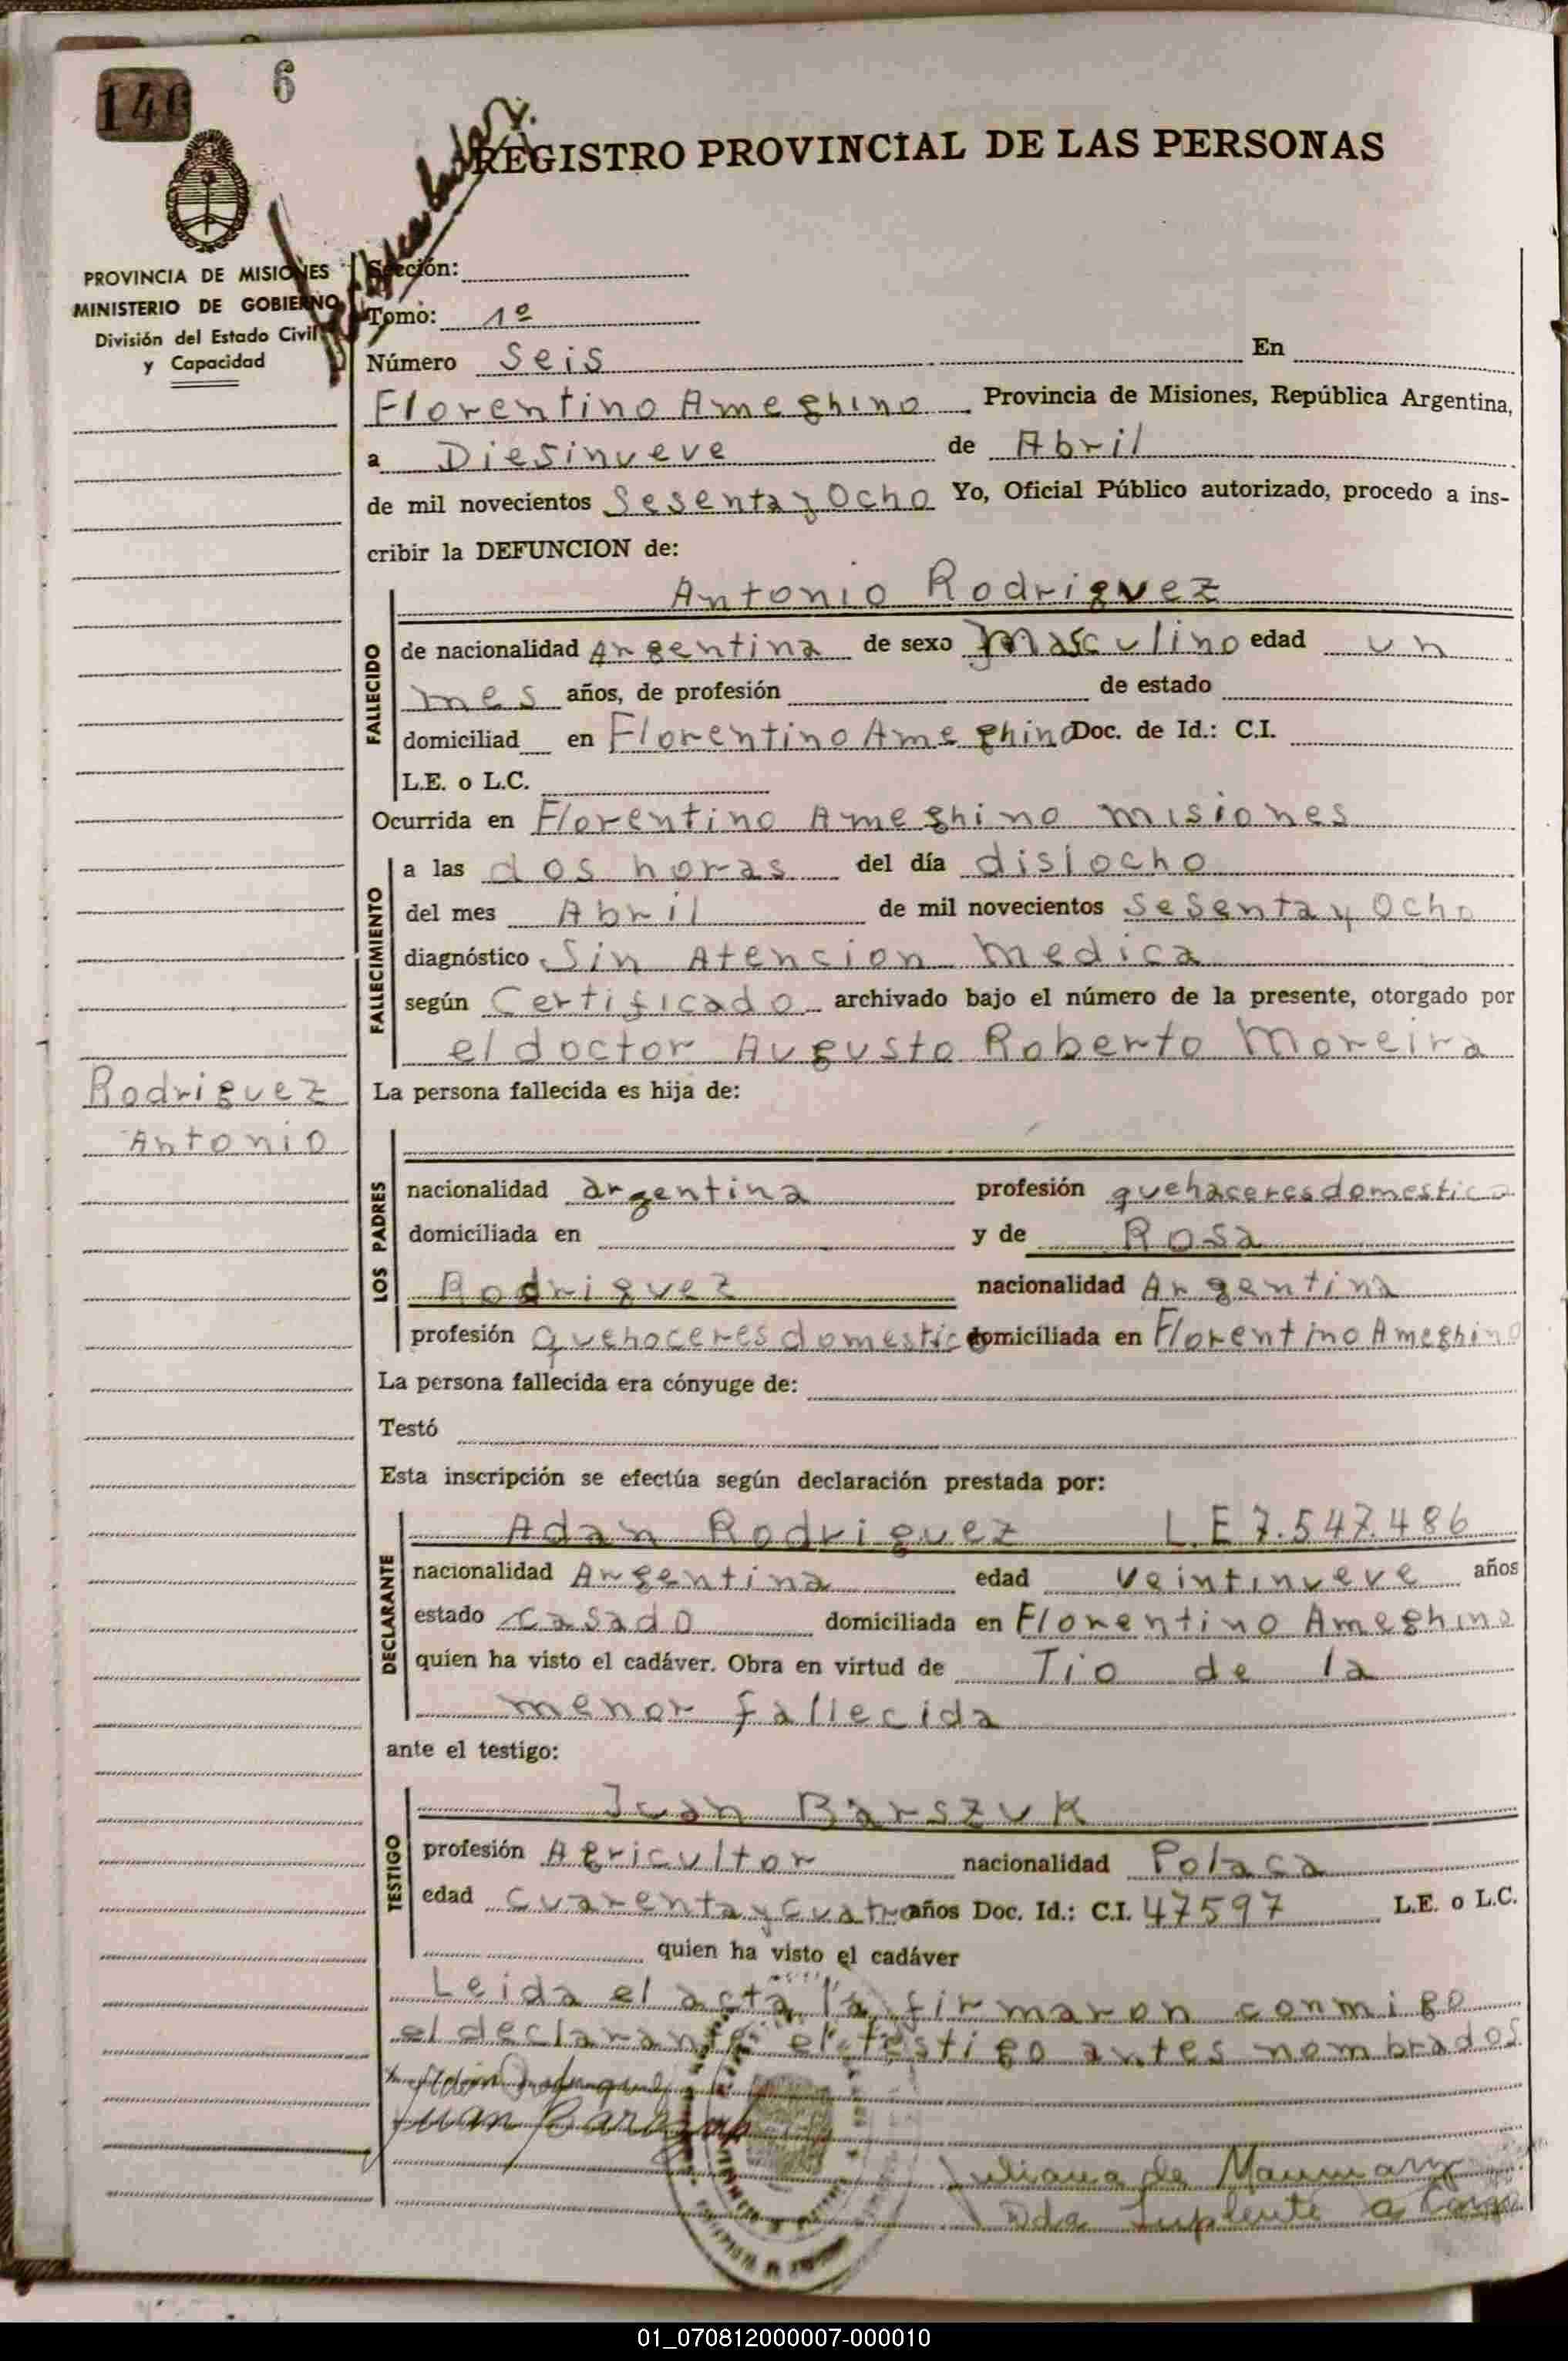 146
6
REGISTRO PROVINCIAL DE LAS PERSONAS
PROVINCIA DE MISIONES
MINISTERIO DE GOBIERNO
División del Estado Civil
y Capacidad
Sección:
Tomo: 1º
Número Seis En
Florentino Ameghino Provincia de Misiones, República Argentina,
a Diesinueve de Abril
de mil novecientos Sesenta y Ocho Yo, Oficial Público autorizado, procedo a ins-
cribir la DEFUNCION de:
Antonio Rodriguez
FALLECIDO
de nacionalidad Argentina de sexo masculino edad un
mes años, de profesión de estado
domiciliad en Florentino Ameghino Doc. de Id.: C.I.
L.E. o L.C.
Ocurrida en Florentino Ameghino misiones
FALLECIMIENTO
a las dos horas del día disiocho
del mes Abril de mil novecientos Sesenta y Ocho
diagnóstico Sin Atencion medica
según Certificado archivado bajo el número de la presente, otorgado por
el doctor Augusto Roberto Moreira
Rodriguez
Antonio
La persona fallecida es hija de:
LOS PADRES
nacionalidad argentina profesión quehaceres domestica
domiciliada en y de Rosa
Rodriguez nacionalidad Argentina
profesión Quehoceres domestic domiciliada en Florentino Ameghino
La persona fallecida era cónyuge de:
Testó
Esta inscripción se efectúa según declaración prestada por:
DECLARANTE
Adan Rodriguez L E 7.547.486
nacionalidad Argentina edad veintinueve años
estado casado domiciliada en Florentino Ameghino
quien ha visto el cadáver. Obra en virtud de Tio de la
menor fallecida
ante el testigo:
TESTIGO
Juan Barszuk
profesión Agricultor nacionalidad Polaca
edad cuarenta y cuatro años Doc. Id.: C.I. 47597 L.E. o L.C.
quien ha visto el cadáver
Leida el acta la firmaron conmigo
el declarante el testigo antes nombrados
Juliana de
Dda Suplente a Cargo
01_070812000007-000010